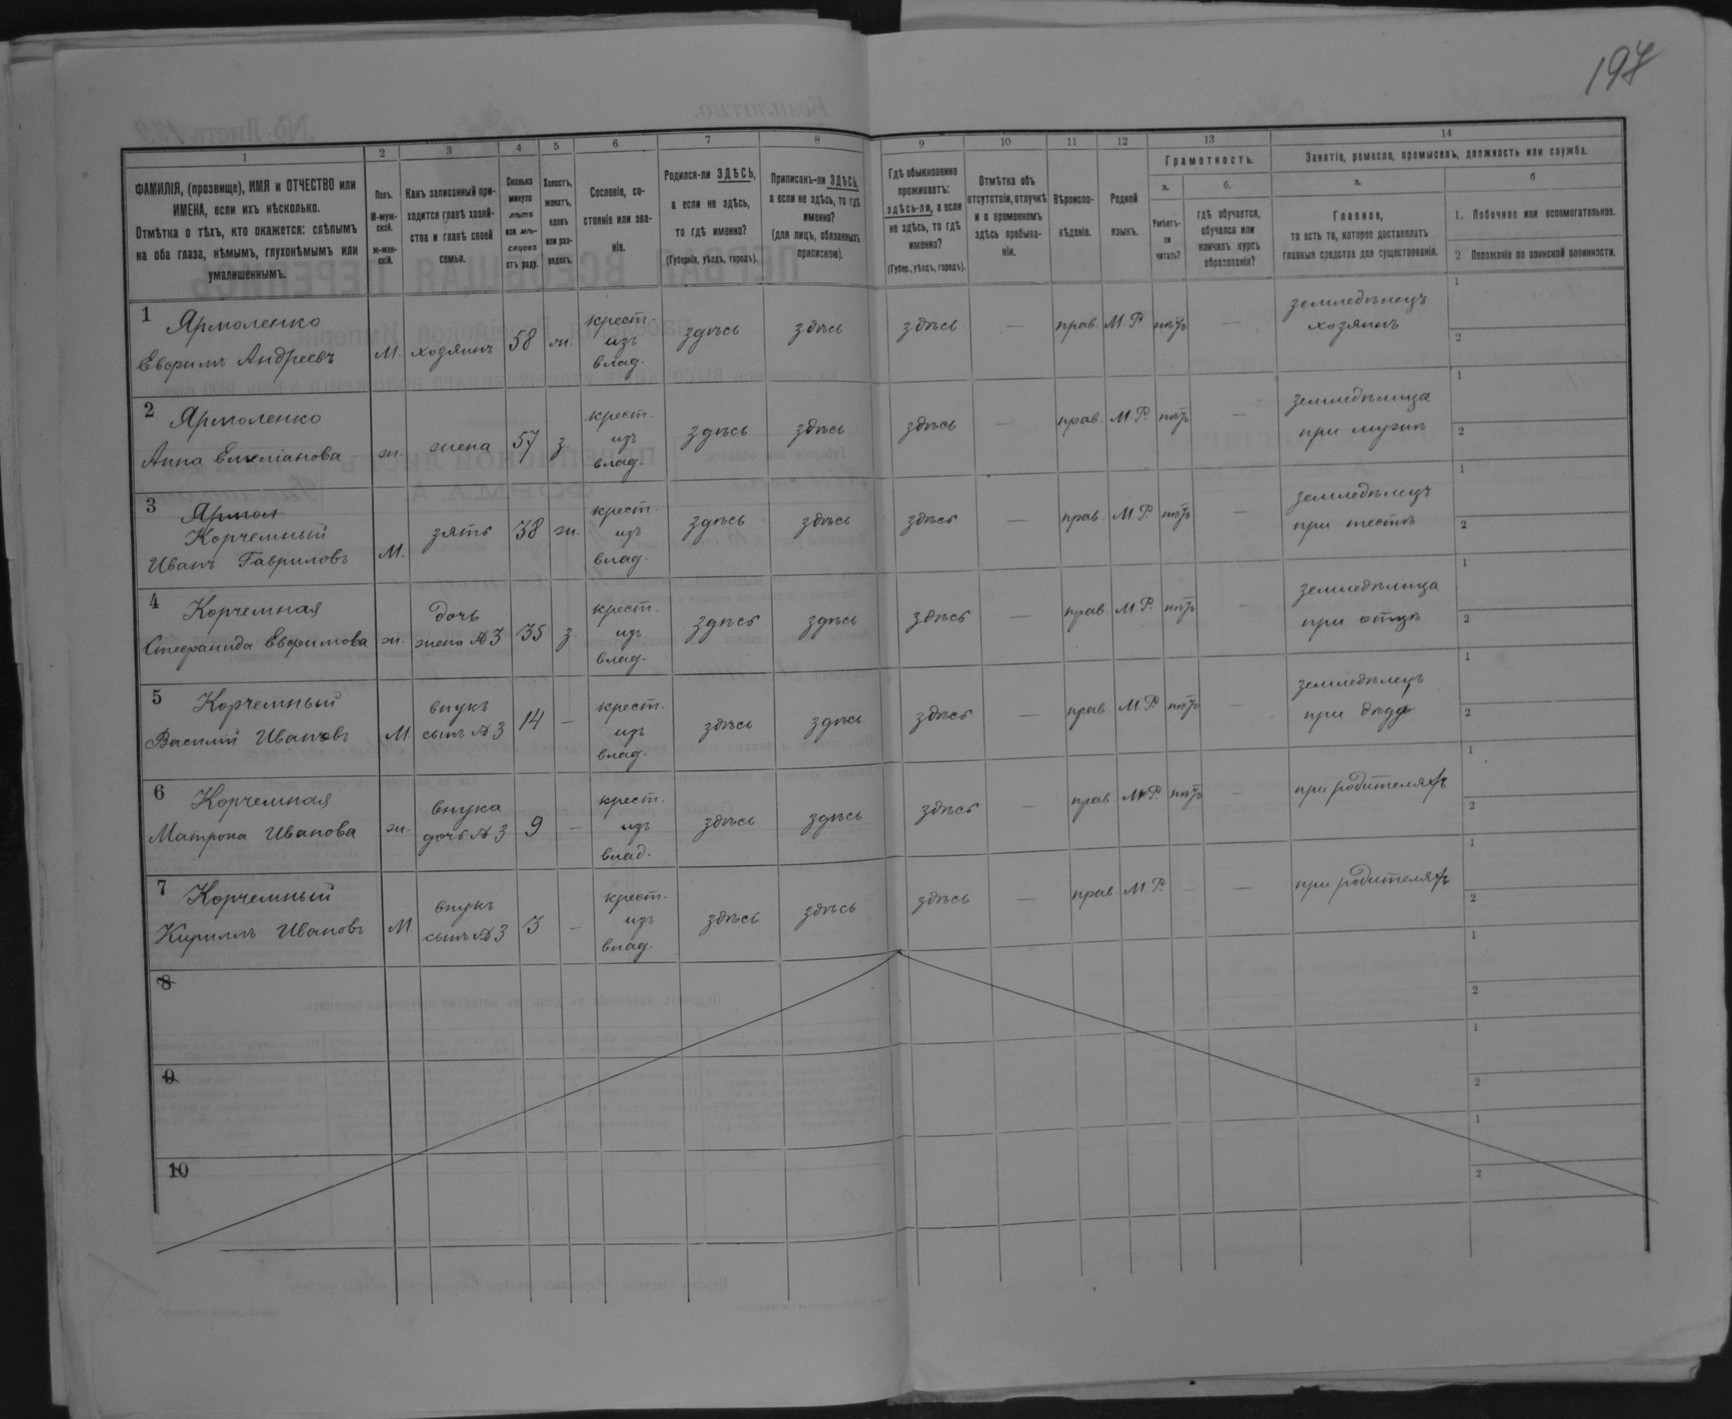 197
1 2 3 4 5 6 7 8 9 10 11 12 13 14
ФАМИЛІЯ, (прозвище), ИМЯ и ОТЧЕСТВО или
ИМЕНА, если ихъ нѣсколько.
Отмѣтка о тѣхъ, кто окажется: слѣпымъ
на оба глаза, нѣмымъ, глухонѣмымъ или
умалишеннымъ.
Полъ.
М-муж-
ской.
ж-жен-
скій.
Какъ записанный при-
ходится главѣ хозяй-
ства и главѣ своей
семьи.
Сколько
минуло
лѣтъ
или мѣ-
сяцевъ
отъ роду.
Холостъ,
женатъ,
вдовъ
или раз-
веденъ.
Сословіе, со-
стояніе или зва-
ніе.
Родился-ли ЗДѢСЬ,
а если не здѣсь,
то гдѣ именно?
(Губернія, уѣздъ, городъ).
Приписанъ-ли ЗДѢСЬ,
а если не здѣсь, то гдѣ
именно?
(для лицъ, обязанныхъ
припискою).
Гдѣ обыкновенно
проживаетъ:
здѣсь-ли, а если
не здѣсь, то гдѣ
именно?
(Губер., уѣздъ, городъ).
Отмѣтка объ
отсутствіи, отлучкѣ
и о временномъ
здѣсь пребыва-
ніи.
Вѣроиспо-
вѣданіе.
Родной
языкъ.
Грамотность.
а.
Умѣетъ-
ли
читать?
б.
гдѣ обучается,
обучался или
кончилъ курсъ
образованія?
Занятіе, ремесло, промыселъ, должность или служба.
а.
Главное,
то есть то, которое доставляетъ
главныя средства для существованія.
б
1. Побочное или вспомогательное.
2 Положеніе по воинской повинности.
1 Ярмоленко
Евфимъ Андреевъ М. хозяинъ 58 ж. крест. изъ влад. здѣсь здѣсь здѣсь — прав. М.Р. нѣтъ — земледѣлецъ хозяинъ 1 2
2 Ярмоленко
Анна Емеліанова ж. жена 57 з. крест. изъ влад. здѣсь здѣсь здѣсь — прав. М.Р. нѣтъ — земледѣлица при мужѣ 1 2
3 Ярмол
Корчемный
Иванъ Гавриловъ М. зять 38 ж. крест. изъ влад. здѣсь здѣсь здѣсь — прав. М.Р. нѣтъ — земледѣлецъ при тестѣ 1 2
4 Корчемная
Стефанида Евфимова ж. дочь жена №3 35 з. крест. изъ влад. здѣсь здѣсь здѣсь — прав М.Р. нѣтъ — земледѣлица при отцѣ 1 2
5 Корчемный
Василій Ивановъ М внукъ сынъ №3 14 — крест. изъ влад. здѣсь здѣсь здѣсь — прав М.Р. нѣтъ — земледѣлецъ при дѣдѣ 1 2
6 Корчемная
Матрона Иванова ж. внука дочь №3 9 — крест. изъ влад. здѣсь здѣсь здѣсь — прав М.Р. нѣтъ — при родителяхъ 1 2
7 Корчемный
Кириллъ Ивановъ М внукъ сынъ №3 3 — крест. изъ влад. здѣсь здѣсь здѣсь — прав М.Р. — — при родителяхъ 1 2
8 1 2
9 1 2
10 1 2